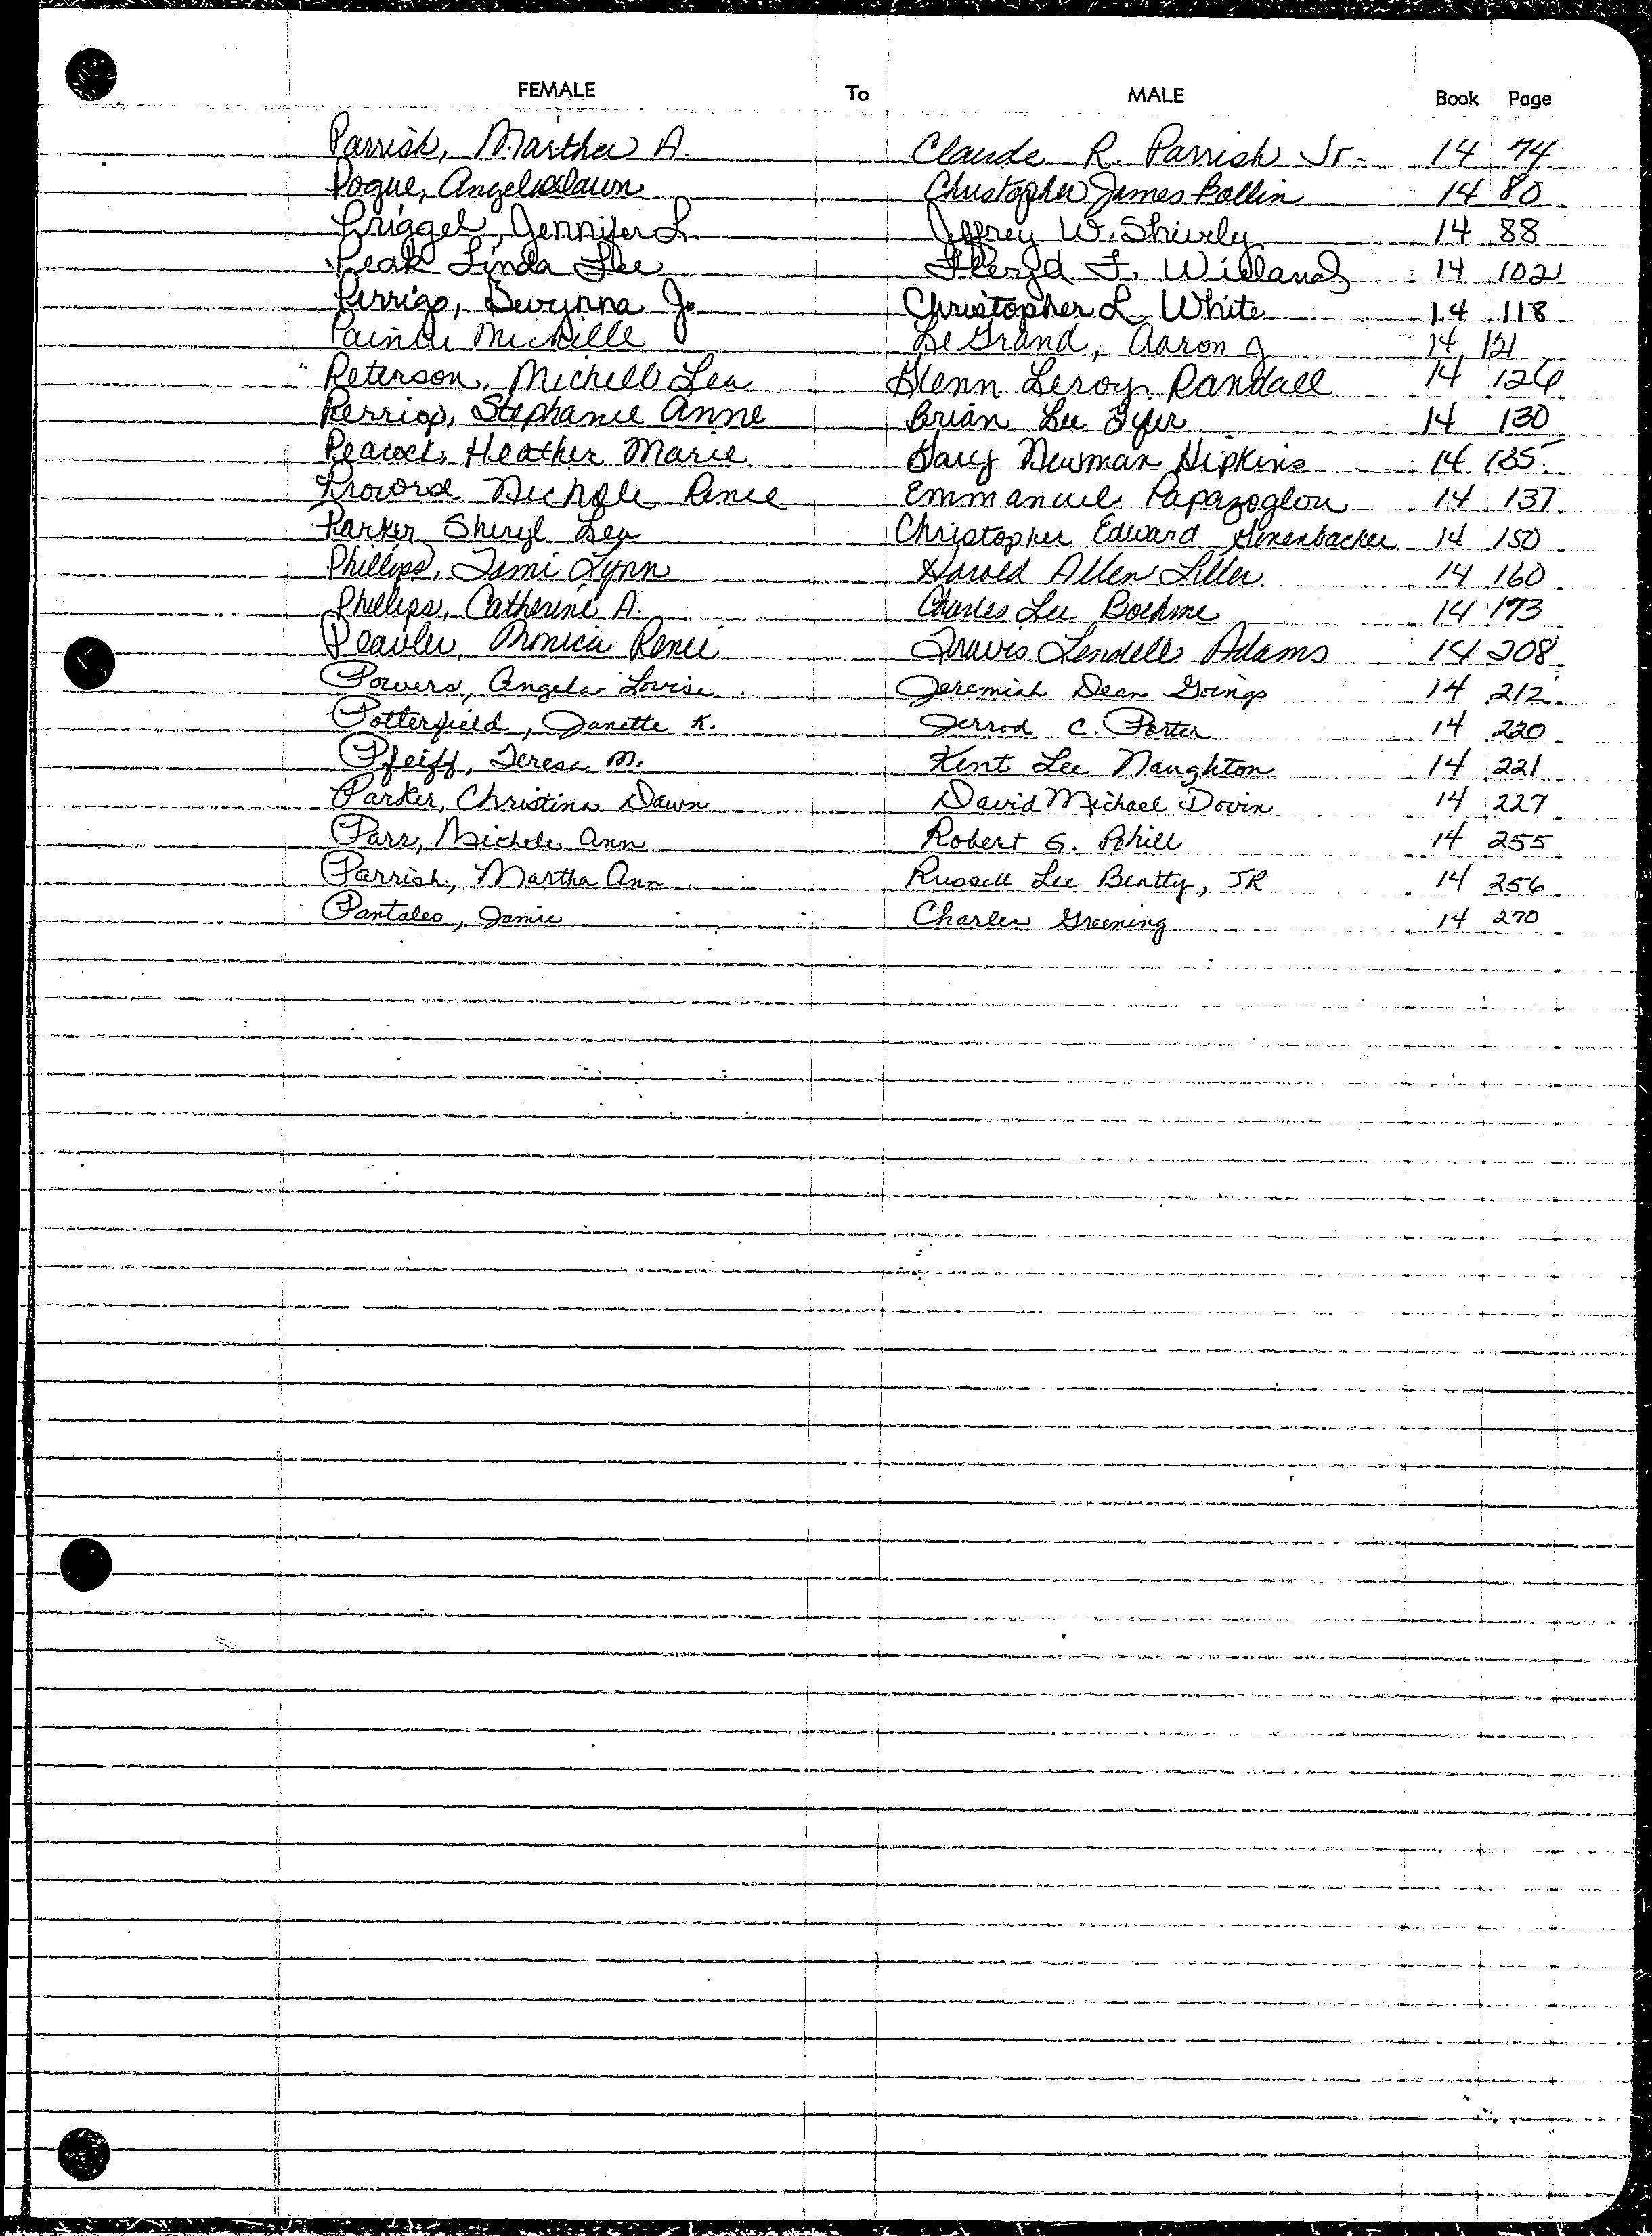 FEMALE To MALE Book Page
Parrish, Martha A. Claude R. Parrish Jr. 14 74
Pogue, Angela Dawn Christopher James Pollin 14 80
Priggel, Jennifer L. Jeffrey W. Shively 14 88
Peak Linda Lee Floyd F. Wieland 14 102
Perrigo, Devynna Jo Christopher L White 14 118
Painter Michelle LeGrand, Aaron J 14 121
Peterson, Michell Lea Glenn Leroy Randall 14 126
Perrigo, Stephanie Anne Brian Lee 14 130
Peacock, Heather Marie Gary Newman Hipkins 14 135
Nichole Renee Emmanuel Papazoglou 14 137
Parker Sheryl Lea Christopher Edward 14 150
Phillips, Tami Lynn Harold Allen Liller 14 160
Phillips, Catherine A. Charles Lee Boehme 14 173
Peavler, Monica Renee Travis Lendell Adams 14 208
Powers, Angela Louise Jeremiah Dean Goings 14 212
Potterfield, Janette K. Jerrod C. Porter 14 220
Pfeiff, Teresa M. Kent Lee Naughton 14 221
Parker, Christina Dawn David Michael Dovin 14 227
Parr, Michele Ann Robert G. 14 255
Parrish, Martha Ann Russell Lee Beatty, JR 14 256
Pantaleo, Jamie Charles Greening 14 270